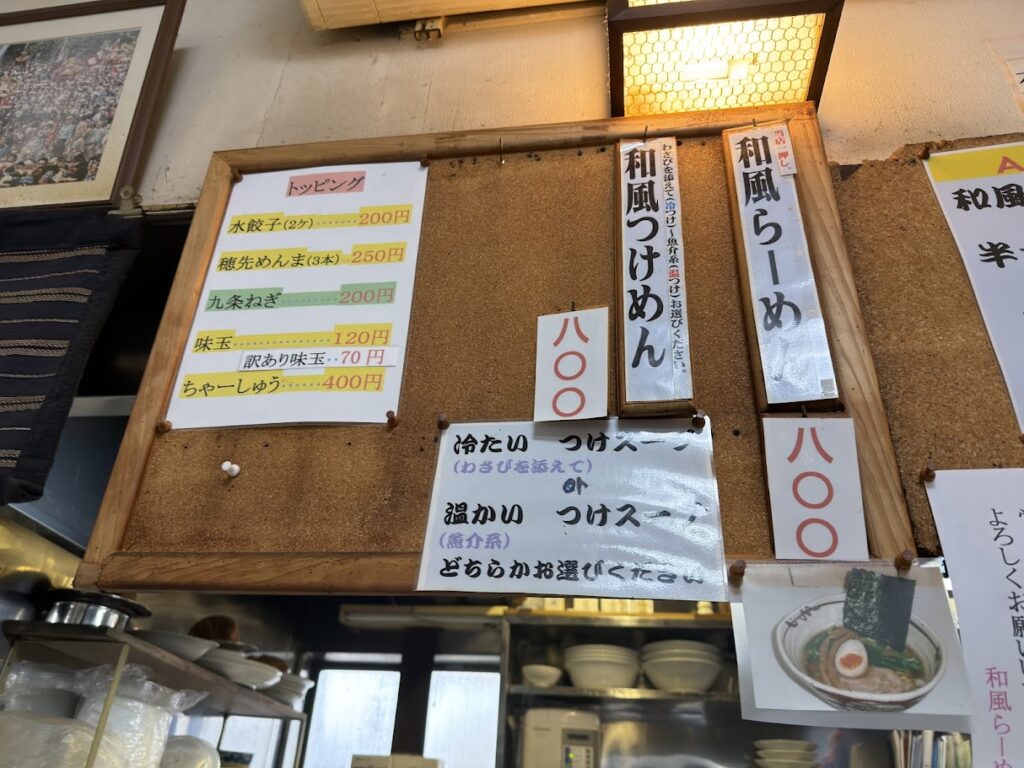 トッピング
水餃子(2ケ)........200円
穂先めんま(3本)..250円
九条ねぎ............200円
味玉..................120円
訳あり味玉..70円
ちゃーしゅう.......400円
和風つけめん
わさびを添えて(冷つけ)〜魚介系(温つけ)お選びください。
八〇〇
当店一押し、
和風らーめん
八〇〇
冷たい つけスープ
(わさびを添えて)
or
温かい つけスープ
(魚介系)
どちらかお選びください
A
和風
半
よろしくお願いし
和風らーめ